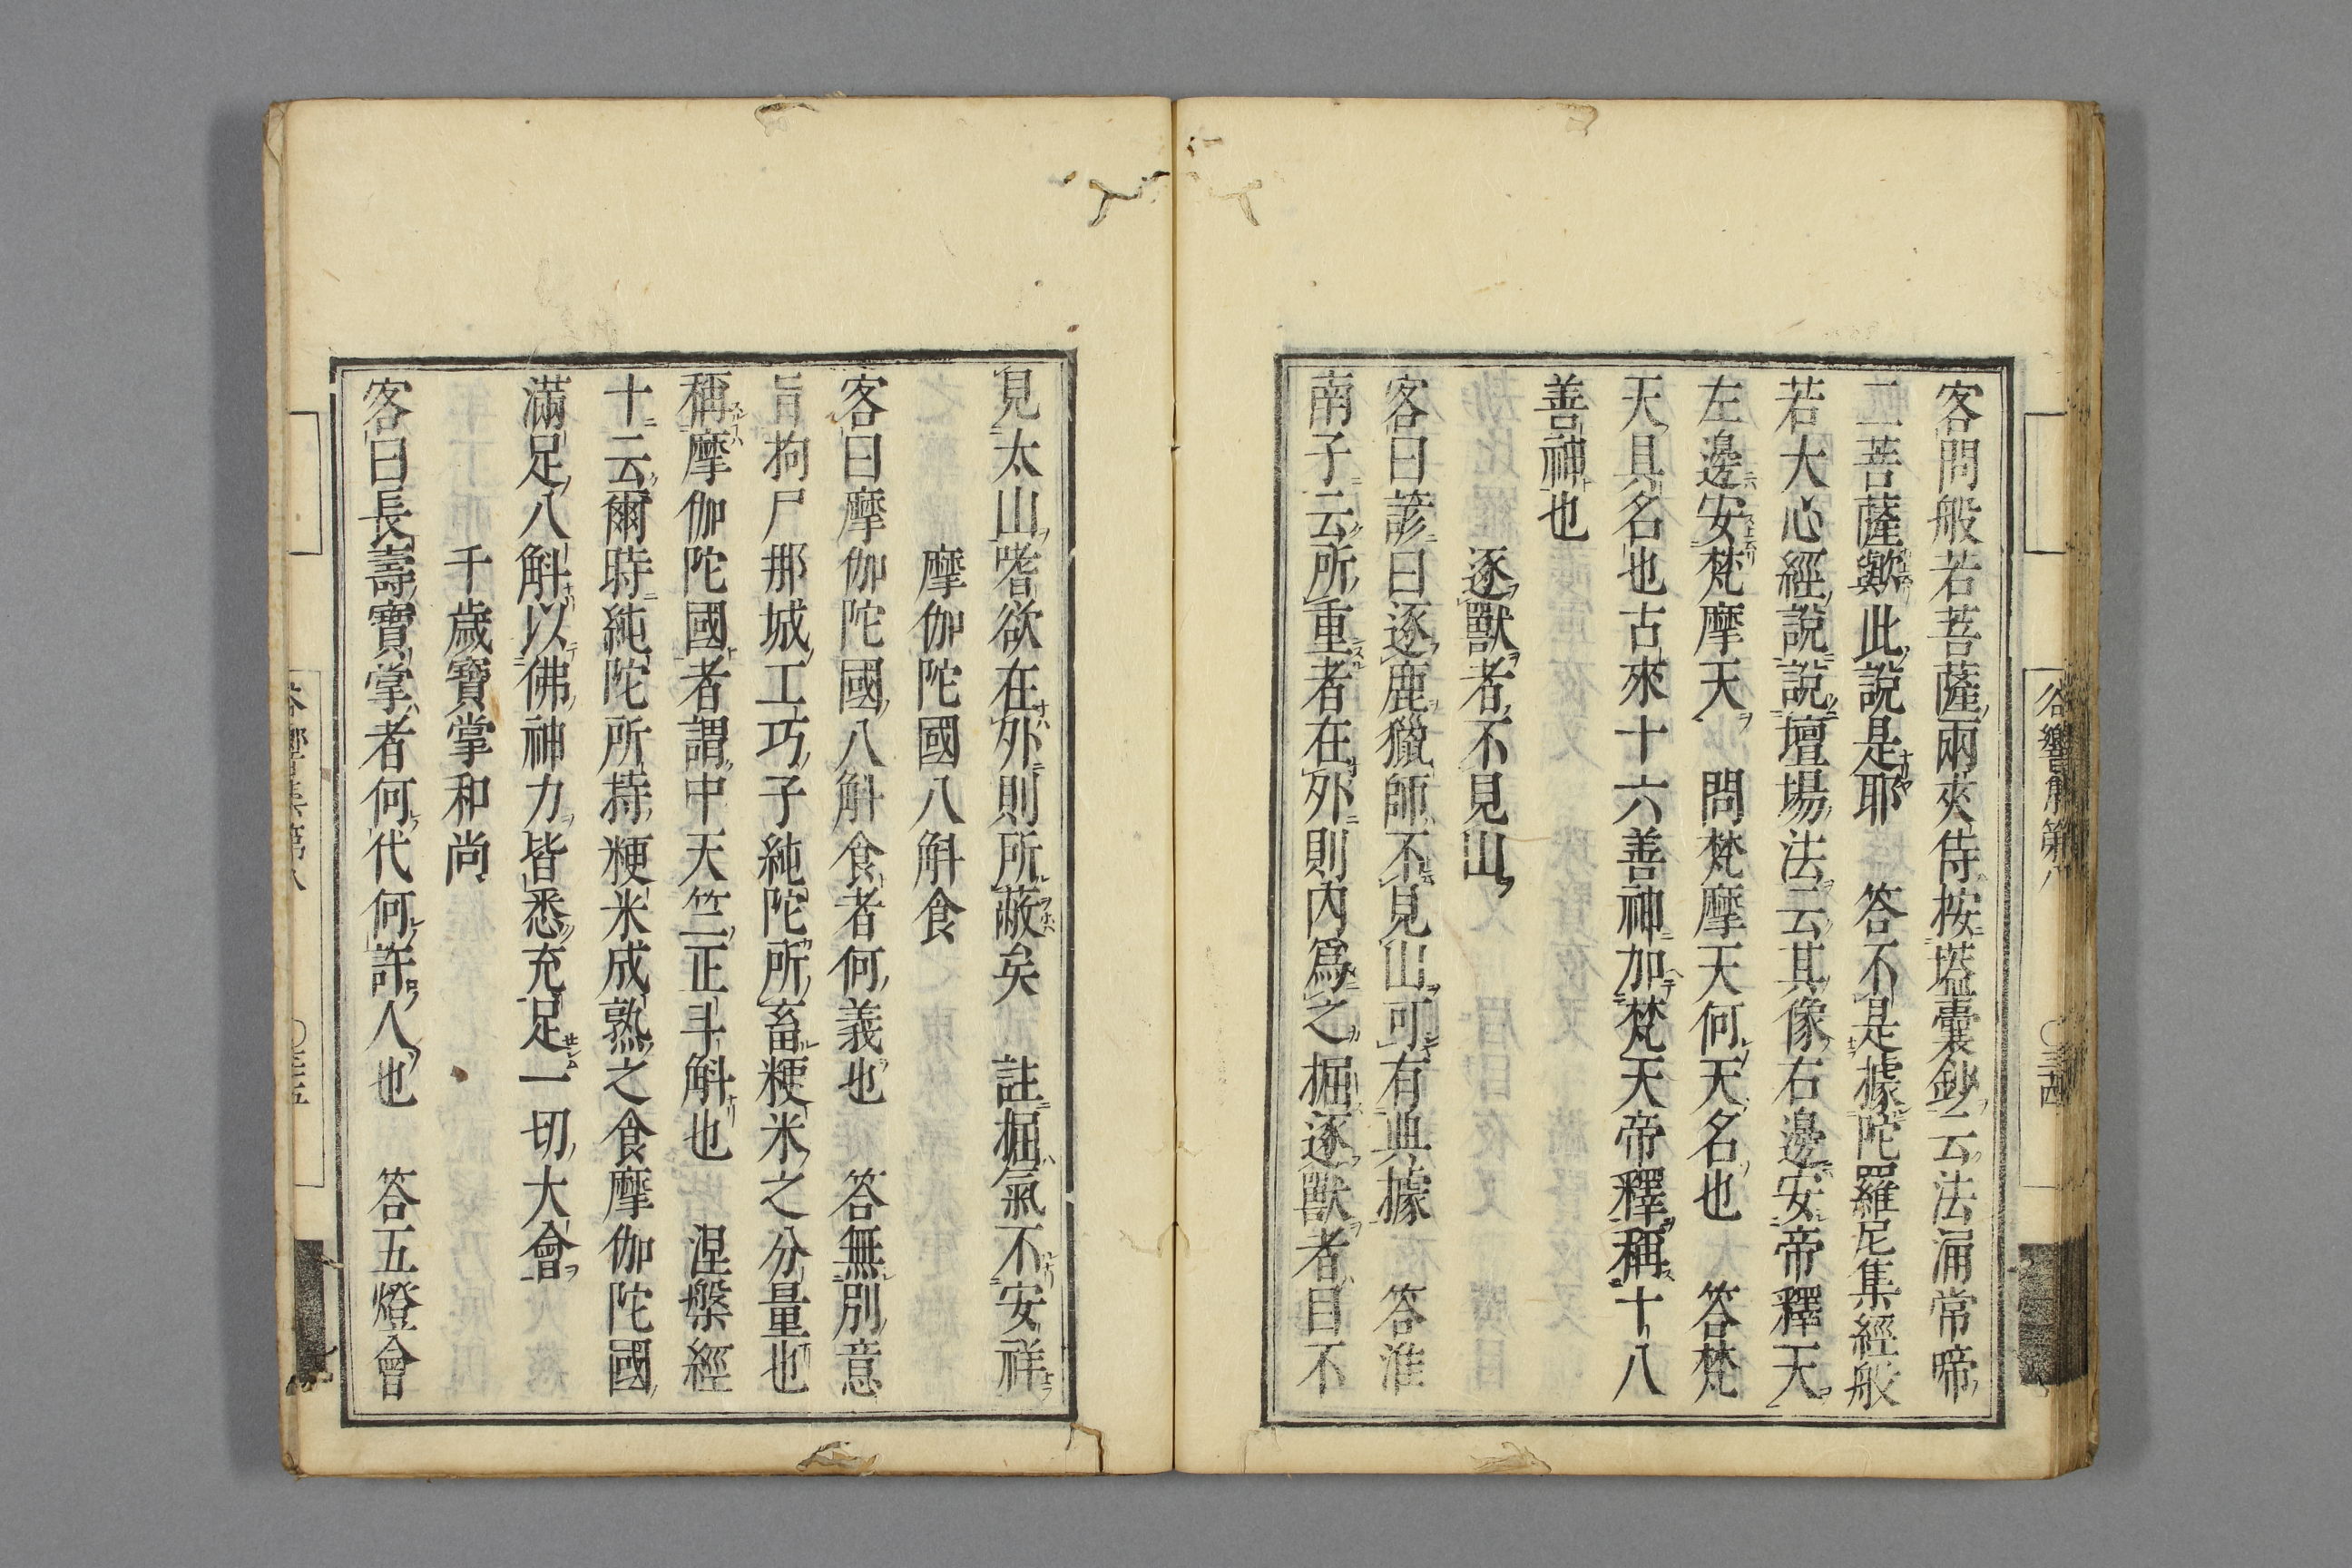 客問般若菩薩兩夾侍按壒囊鈔云法涌常啼
二菩薩歟此說是耶　答不是據陀羅尼集經般
若大心經說說壇場法云其像右邊安帝釋天
左邊安梵摩天　問梵摩天何天名也　答梵
天具名也古來十六善神加梵天帝釋稱十八
善神也
逐獸者不見山
客曰諺曰逐鹿獵師不見山可有典據　答淮
南子云所重者在外則內爲之掘逐獸者目不
見太山嗜欲在外則所蔽矣　註掘氣不安祥
摩伽陀國八斛食
客曰摩伽陀國八斛食者何義也　答無別意
旨拘尸那城工巧子純陀所畜粳米之分量也
稱摩伽陀國者謂中天竺正斗斛也　涅槃經
十云爾時純陀所持粳米成熟之食摩伽陀國
滿足八斛以佛神力皆悉充足一切大會
千歲寶掌和尚
客曰長壽寶掌者何代何許人也　答五燈會
谷響集第八
〇三十四
谷響集第八
〇三十五